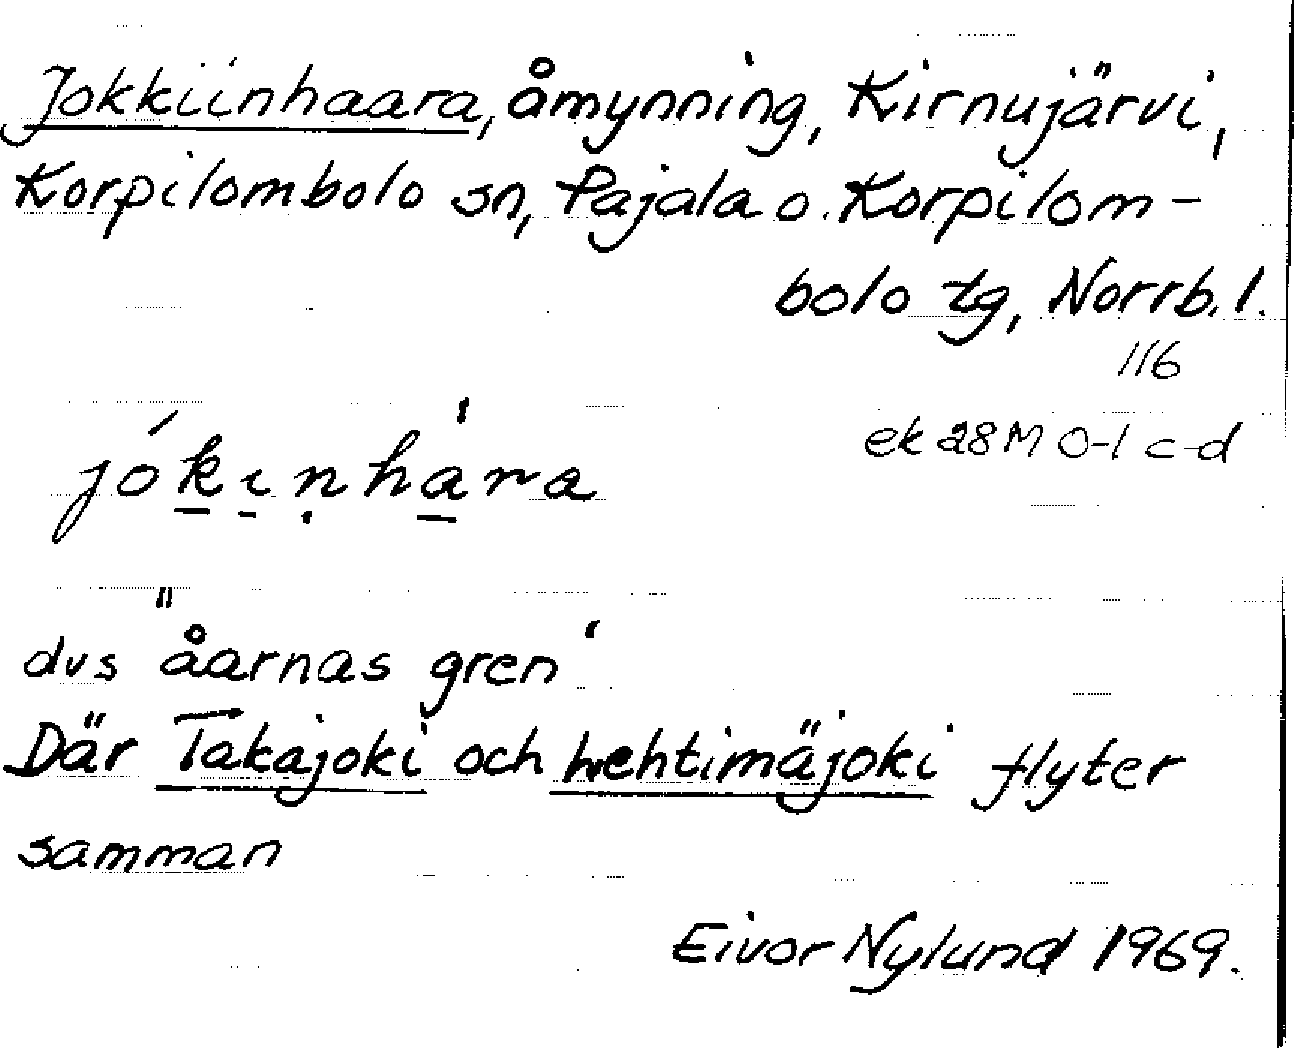 Jokkiinhaara, åmynning, Kirnujärvi,
Korpilombolo sn, Pajala o. Korpilom-
bolo tg, Norrb. l.
116
ek 28M 0-1 c-d
jók̲i̲ṇha̲ra
dvs "åarnas gren"
Där Takajoki och Lehtimäjoki flyter
samman
Eivor Nylund 1969.